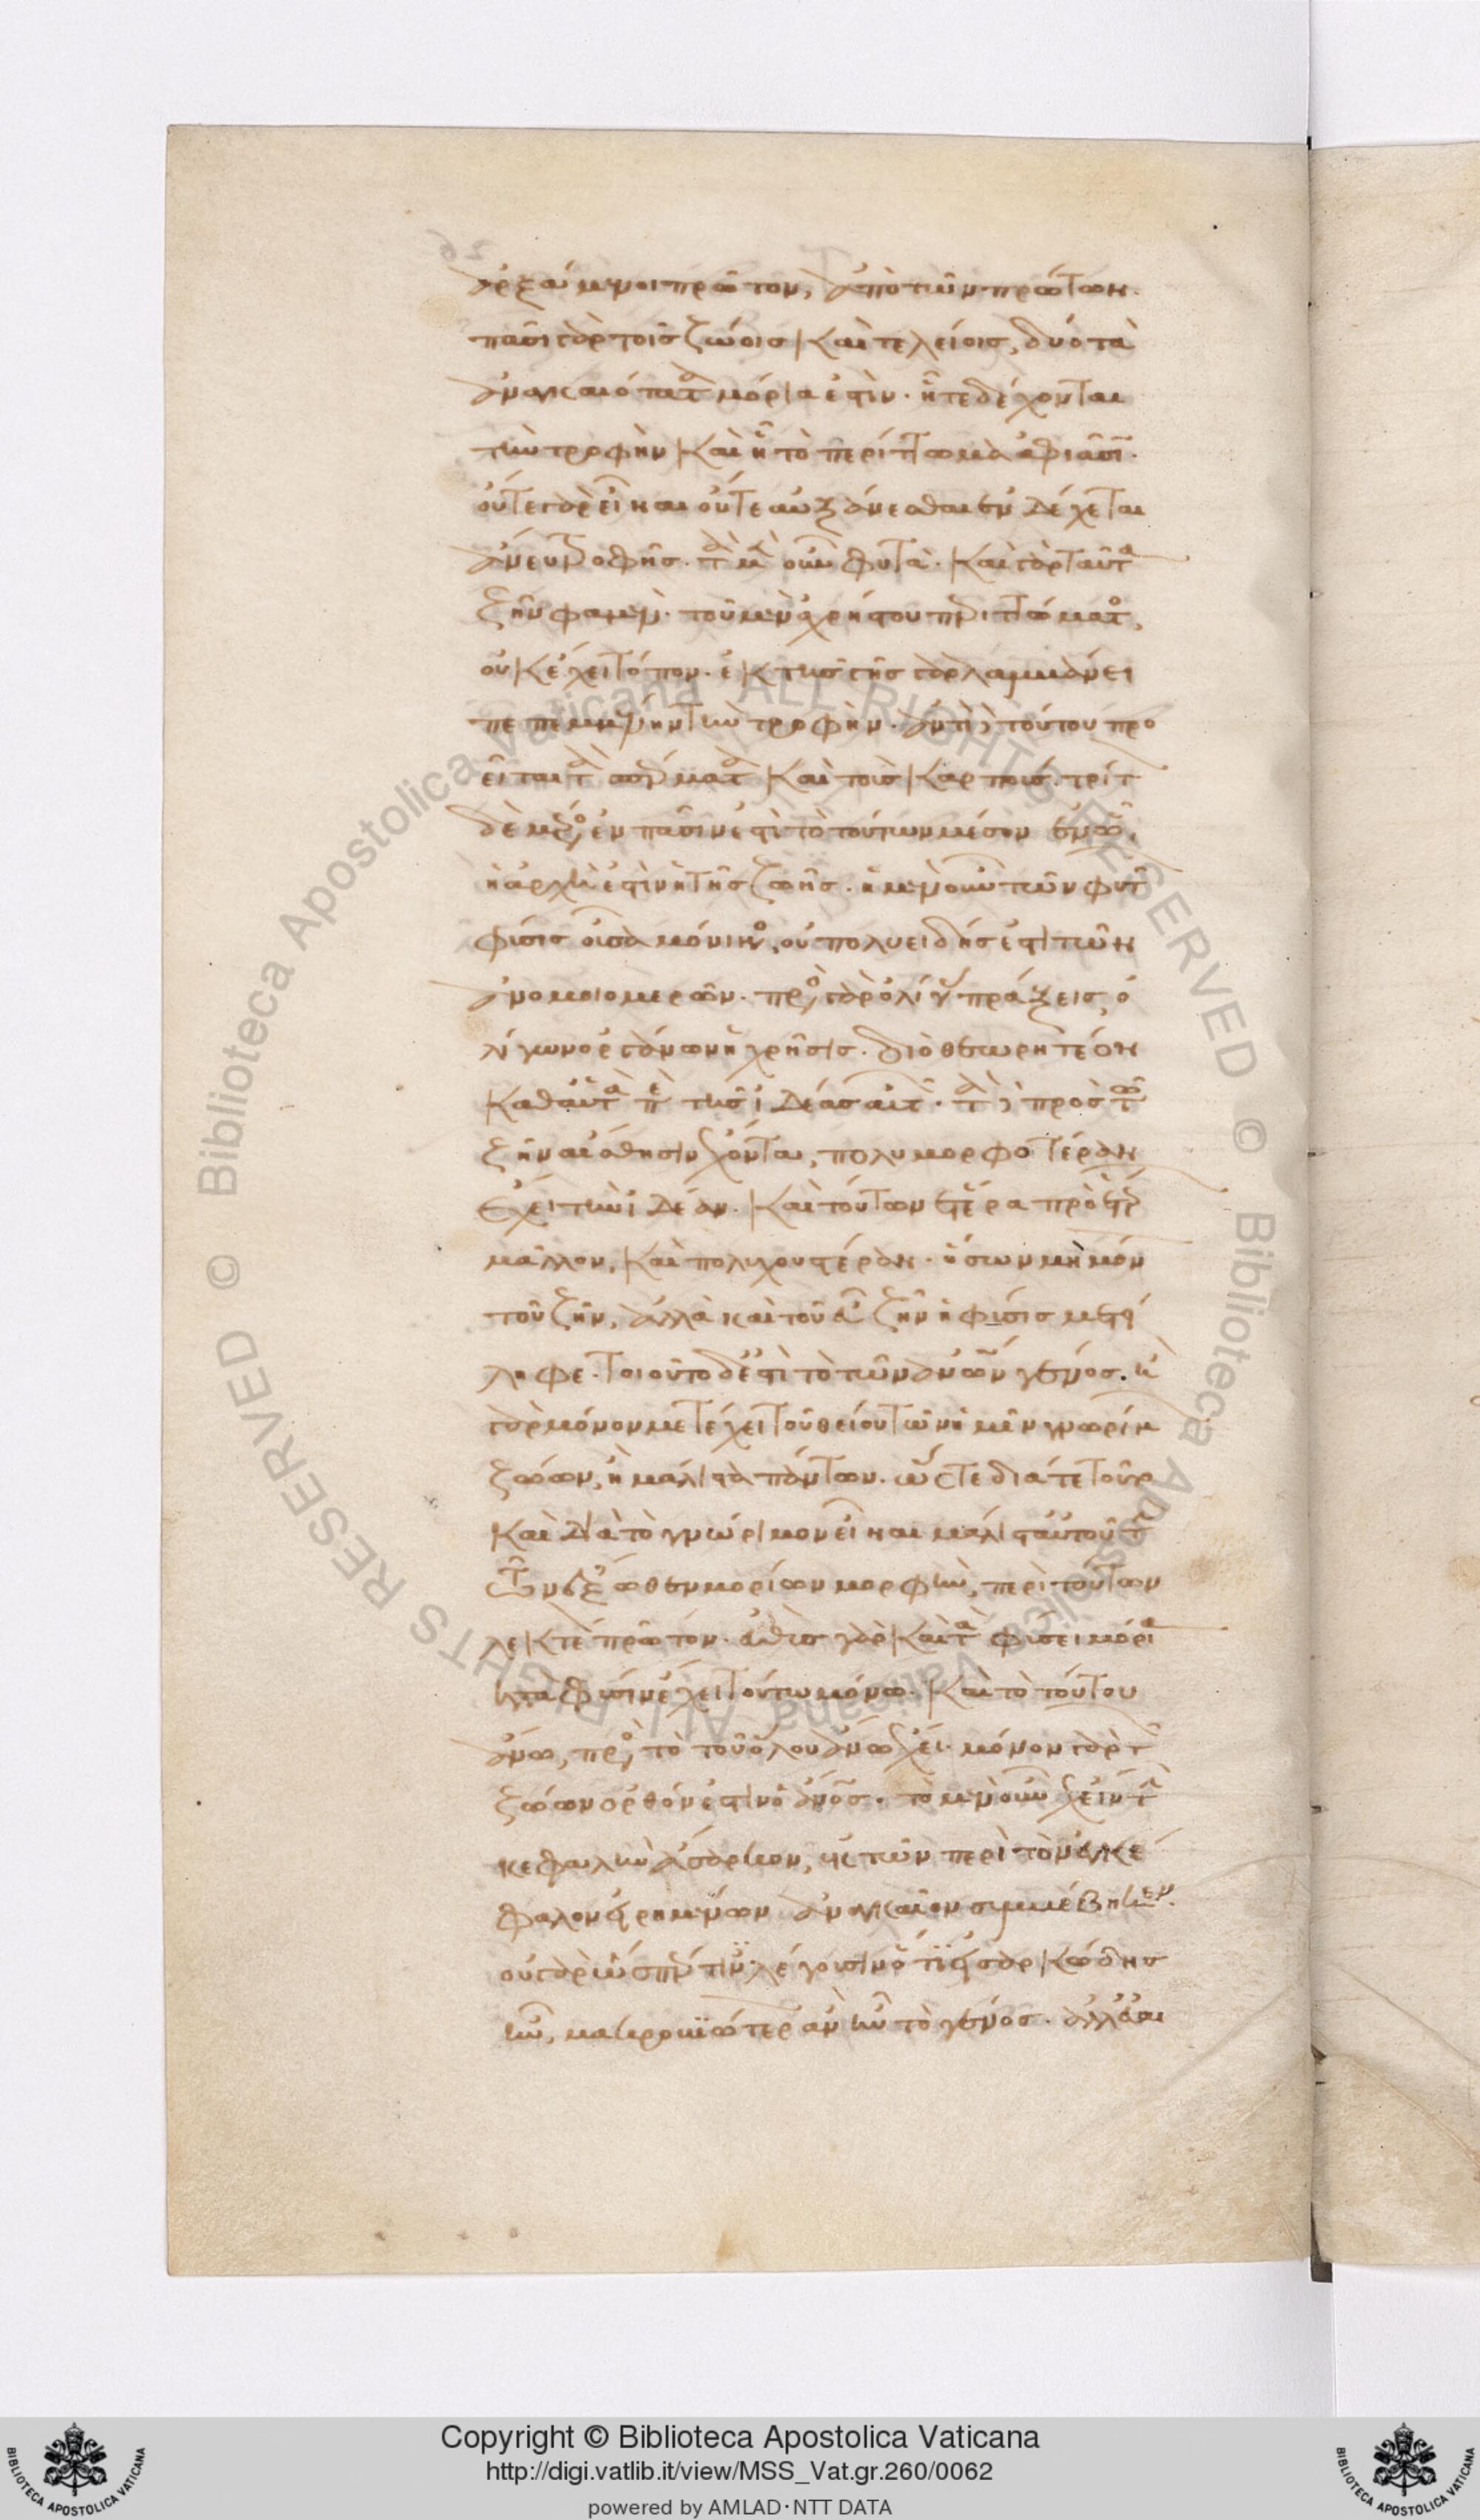 ἀρξάμενοι πρῶτον, ἀπὸ τῶν πρώτων.
πᾶσι γὰρ τοῖς ζώοις καὶ τελείοις, δύο τὰ
ἀναγκαιότατα μόρια ἐστὶν. ἧ τε δέχονται
τὴν τροφὴν καὶ ἧ τὸ περίττωμα ἀφιᾶσι.
οὔτε γὰρ εἶναι οὔτε αὐξάνεσθαι ἐνδέχεται
ἄνευ τροφῆς. τὰ μὲν οὖν φυτὰ. καὶ γὰρ ταῦτα
ζῆν φαμεν. τοῦ μὲν ἀχρήστου περιττώματος,
οὐκ ἔχει τόπον. ἐκ τῆς γῆς γὰρ λαμβάνει
πεπεμμένην τὴν τροφὴν. ἀντὶ δὲ τούτου προ
εῖται τὰ σπέρματα καὶ τοὺς καρπούς. τρίτον
δὲ μέρος ἐν πᾶσιν ἐστὶ τὸ τούτων μέσον ἐν ᾧ,
ἡ ἀρχὴ ἐστὶν ἡ τῆς ζωῆς. ἡ μὲν οὖν τῶν φυτῶν
φύσις οὖσα μόνιμος, οὐ πολυειδής ἐστι τῶν
ἀνομοιομερῶν. πρὸς γὰρ ὀλίγας πράξεις, ὀ
λίγων ὀργάνων ἡ χρῆσις. διὸ θεωρητέον
καθαὑτὰ περὶ τῆς ἰδέας αὐτῶν. τὰ δὲ πρὸς τῶ
ζῆν αἴσθησιν ἔχοντα, πολυμορφοτέραν
ἔχει τὴν ἰδέαν. καὶ τούτων ἕτερα πρὸ ἑτέρων
μᾶλλον, καὶ πολυχουστέραν. ὅσων μὴ μόνον
τοῦ ζῆν, ἀλλὰ καὶ τοῦ εὖ ζῆν ἡ φύσις μετεί
ληφε. τοιοῦτο δέ ἐστὶ τὸ τῶν ἀνθρώπων γένος. ἢ
γὰρ μόνον μετέχει τοῦ θείου τῶν ἡμῖν γνωρίμων
ζώων, ἢ μάλιστα πάντων. ὥστε διά τε τοῦτο
καὶ διὰ τὸ γνώριμον εἶναι μάλιστ αὐτοῦ τὴν
τῶν ἔξωθεν μορίων μορφὴν, περὶ τούτων
λεκτέον πρῶτον. εὐθὺς γὰρ καὶ τὰ φύσει μόρια
κατὰ φύσιν ἔχει τούτω μόνω. καὶ τὸ τούτου
ἄνω, πρὸς τὸ τοῦ ὅλου ἄνω ἔχει. μόνον γὰρ τῶν
ζώων ὀρθόν ἐστιν ὁ ἄνθρωπος. τὸ μὲν οὖν ἔχειν τὴν
κεφαλὴν ἄσαρκον, ἐκ τῶν περὶ τὸν ἐγκέ
φαλον εἰρημένων ἀναγκαῖον συμβέβηκεν.
οὐ γὰρ ὥσπερ τινὲς λέγουσιν ὅτι εἰ σαρκώδης
ἦν, μακροβιώτερον ἂν ἦν τὸ γένος. ἀλλ εὐαι
Copyright © Biblioteca Apostolica Vaticana
http://digi.vatlib.it/view/MSS_Vat.gr.260/0062
powered by AMLAD·NTT DATA